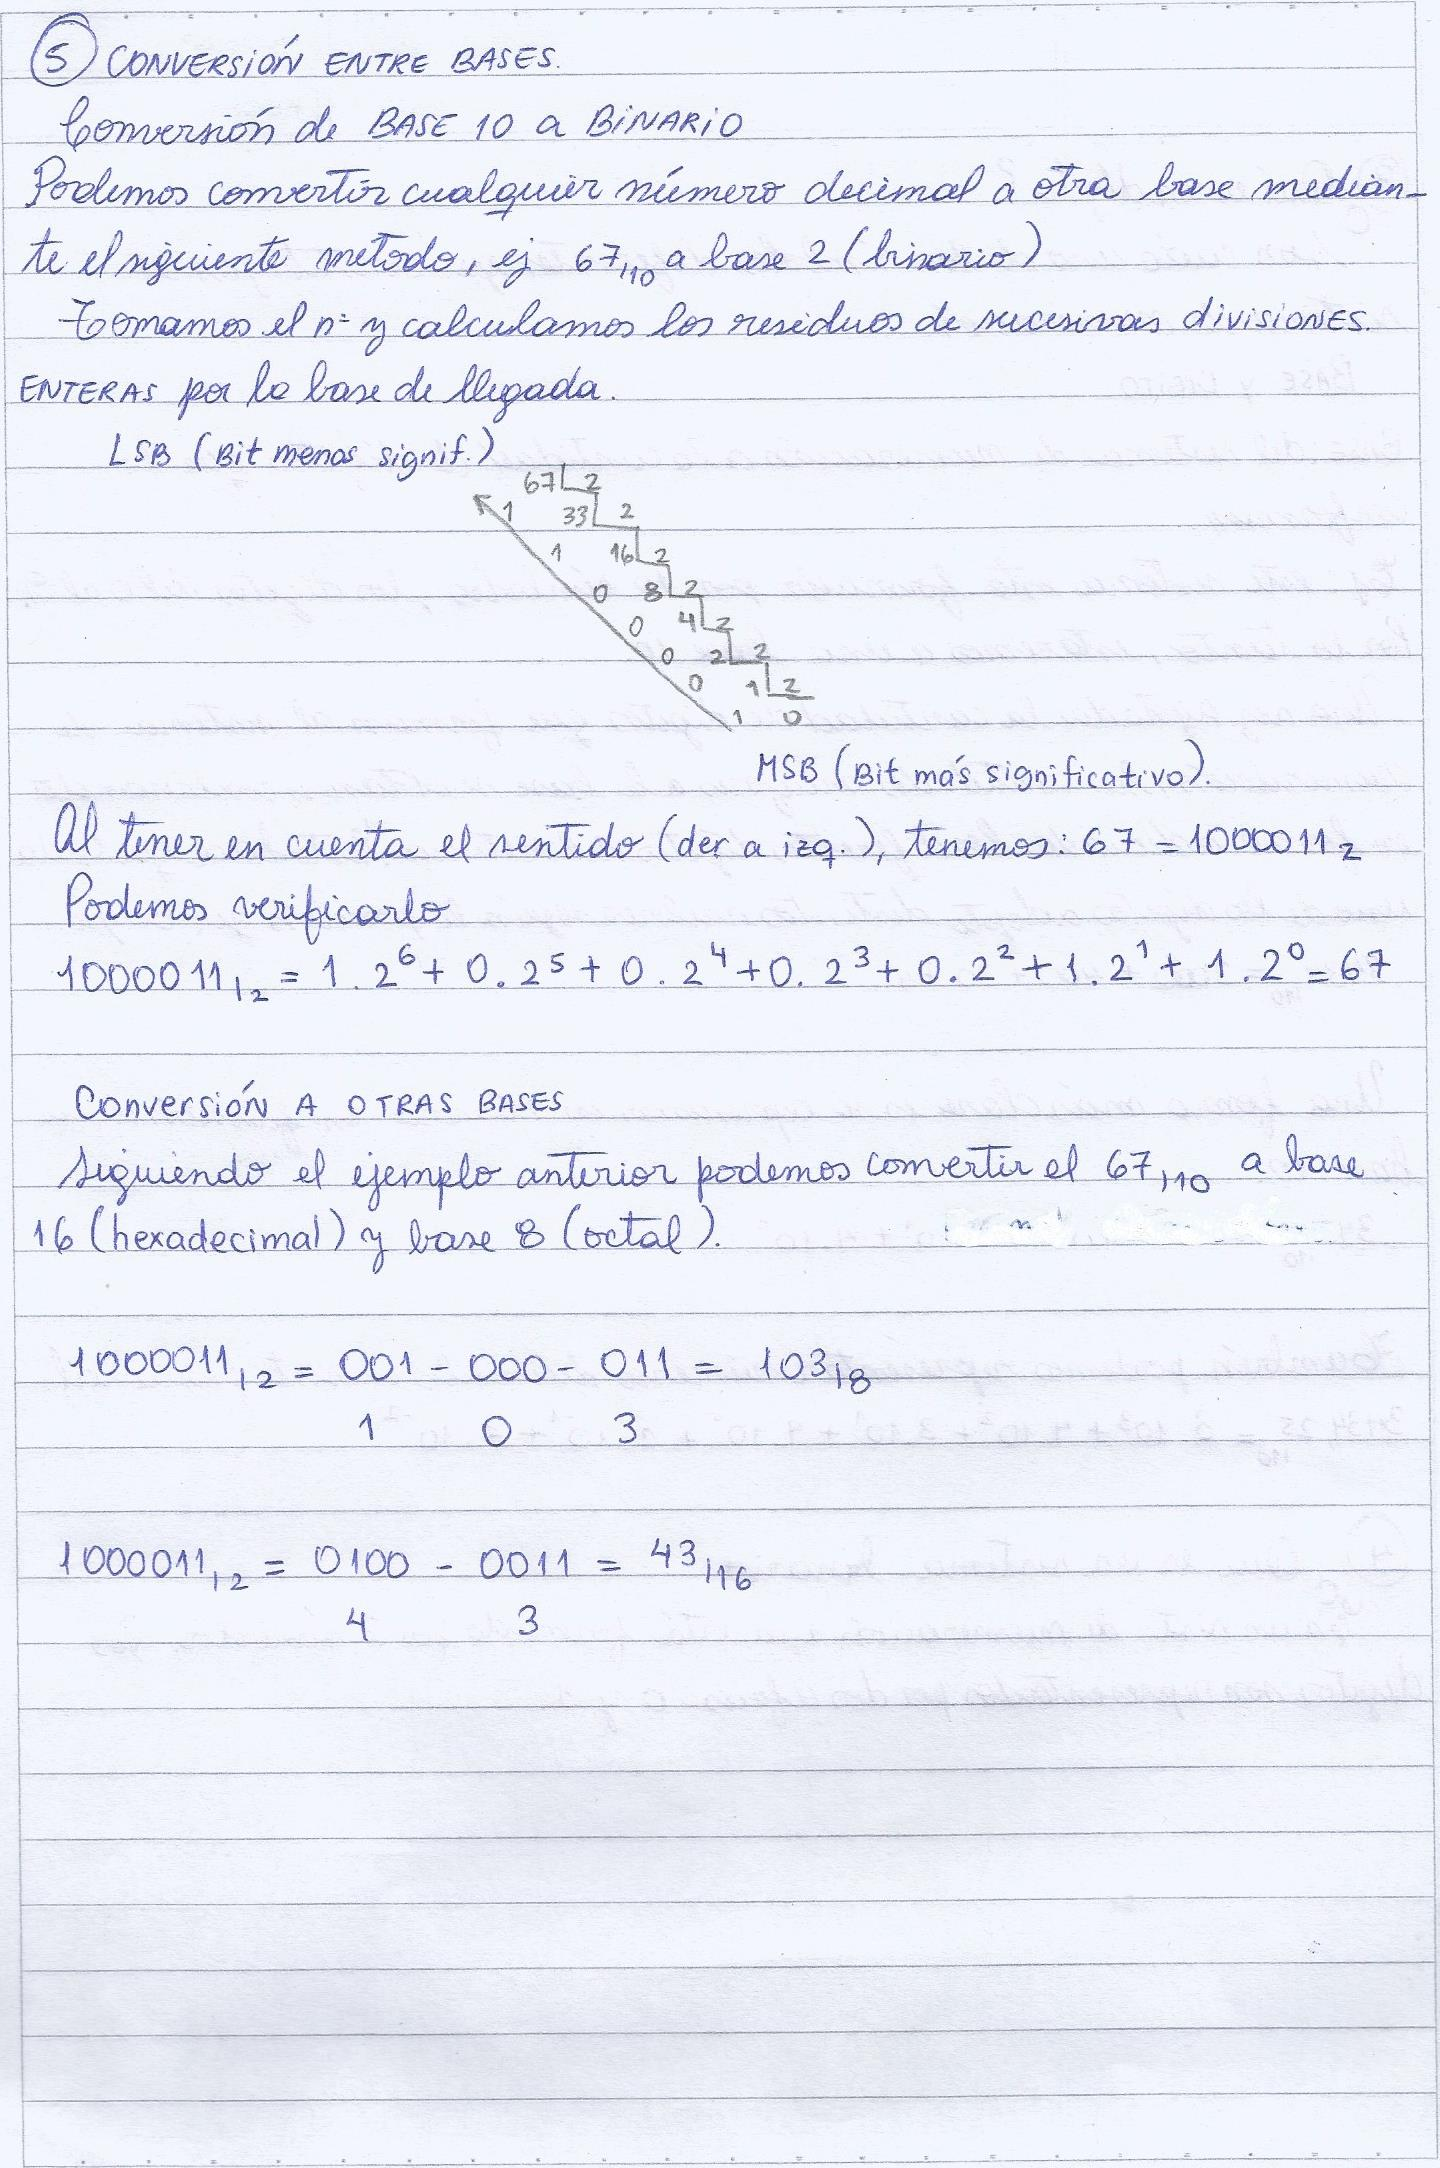 5 CONVERSIÓN ENTRE BASES.
Conversión de BASE 10 a BINARIO
Podemos convertir cualquier número decimal a otra base median-
te el siguiente metodo, ej 67|10 a base 2 (binario)
Tomamos el nº y calculamos los residuos de sucesivas divisiones.
ENTERAS por la base de llegada.
LSB (Bit menos signif.)
67 2
1 33 2
1 16 2
0 8 2
0 4 2
0 2 2
0 1 2
1 0
MSB (Bit más significativo).
Al tener en cuenta el sentido (der a izq.), tenemos: 67 = 1000011 2
Podemos verificarlo
1000011|2 = 1.2⁶ + 0.2⁵ + 0.2⁴ + 0.2³ + 0.2² + 1.2¹ + 1.2⁰ = 67
Conversión A OTRAS BASES
Siguiendo el ejemplo anterior podemos convertir el 67|10 a base
16 (hexadecimal) y base 8 (octal).
1000011|2 = 001 - 000 - 011 = 103|8
1 0 3
1000011|2 = 0100 - 0011 = 43|16
4 3